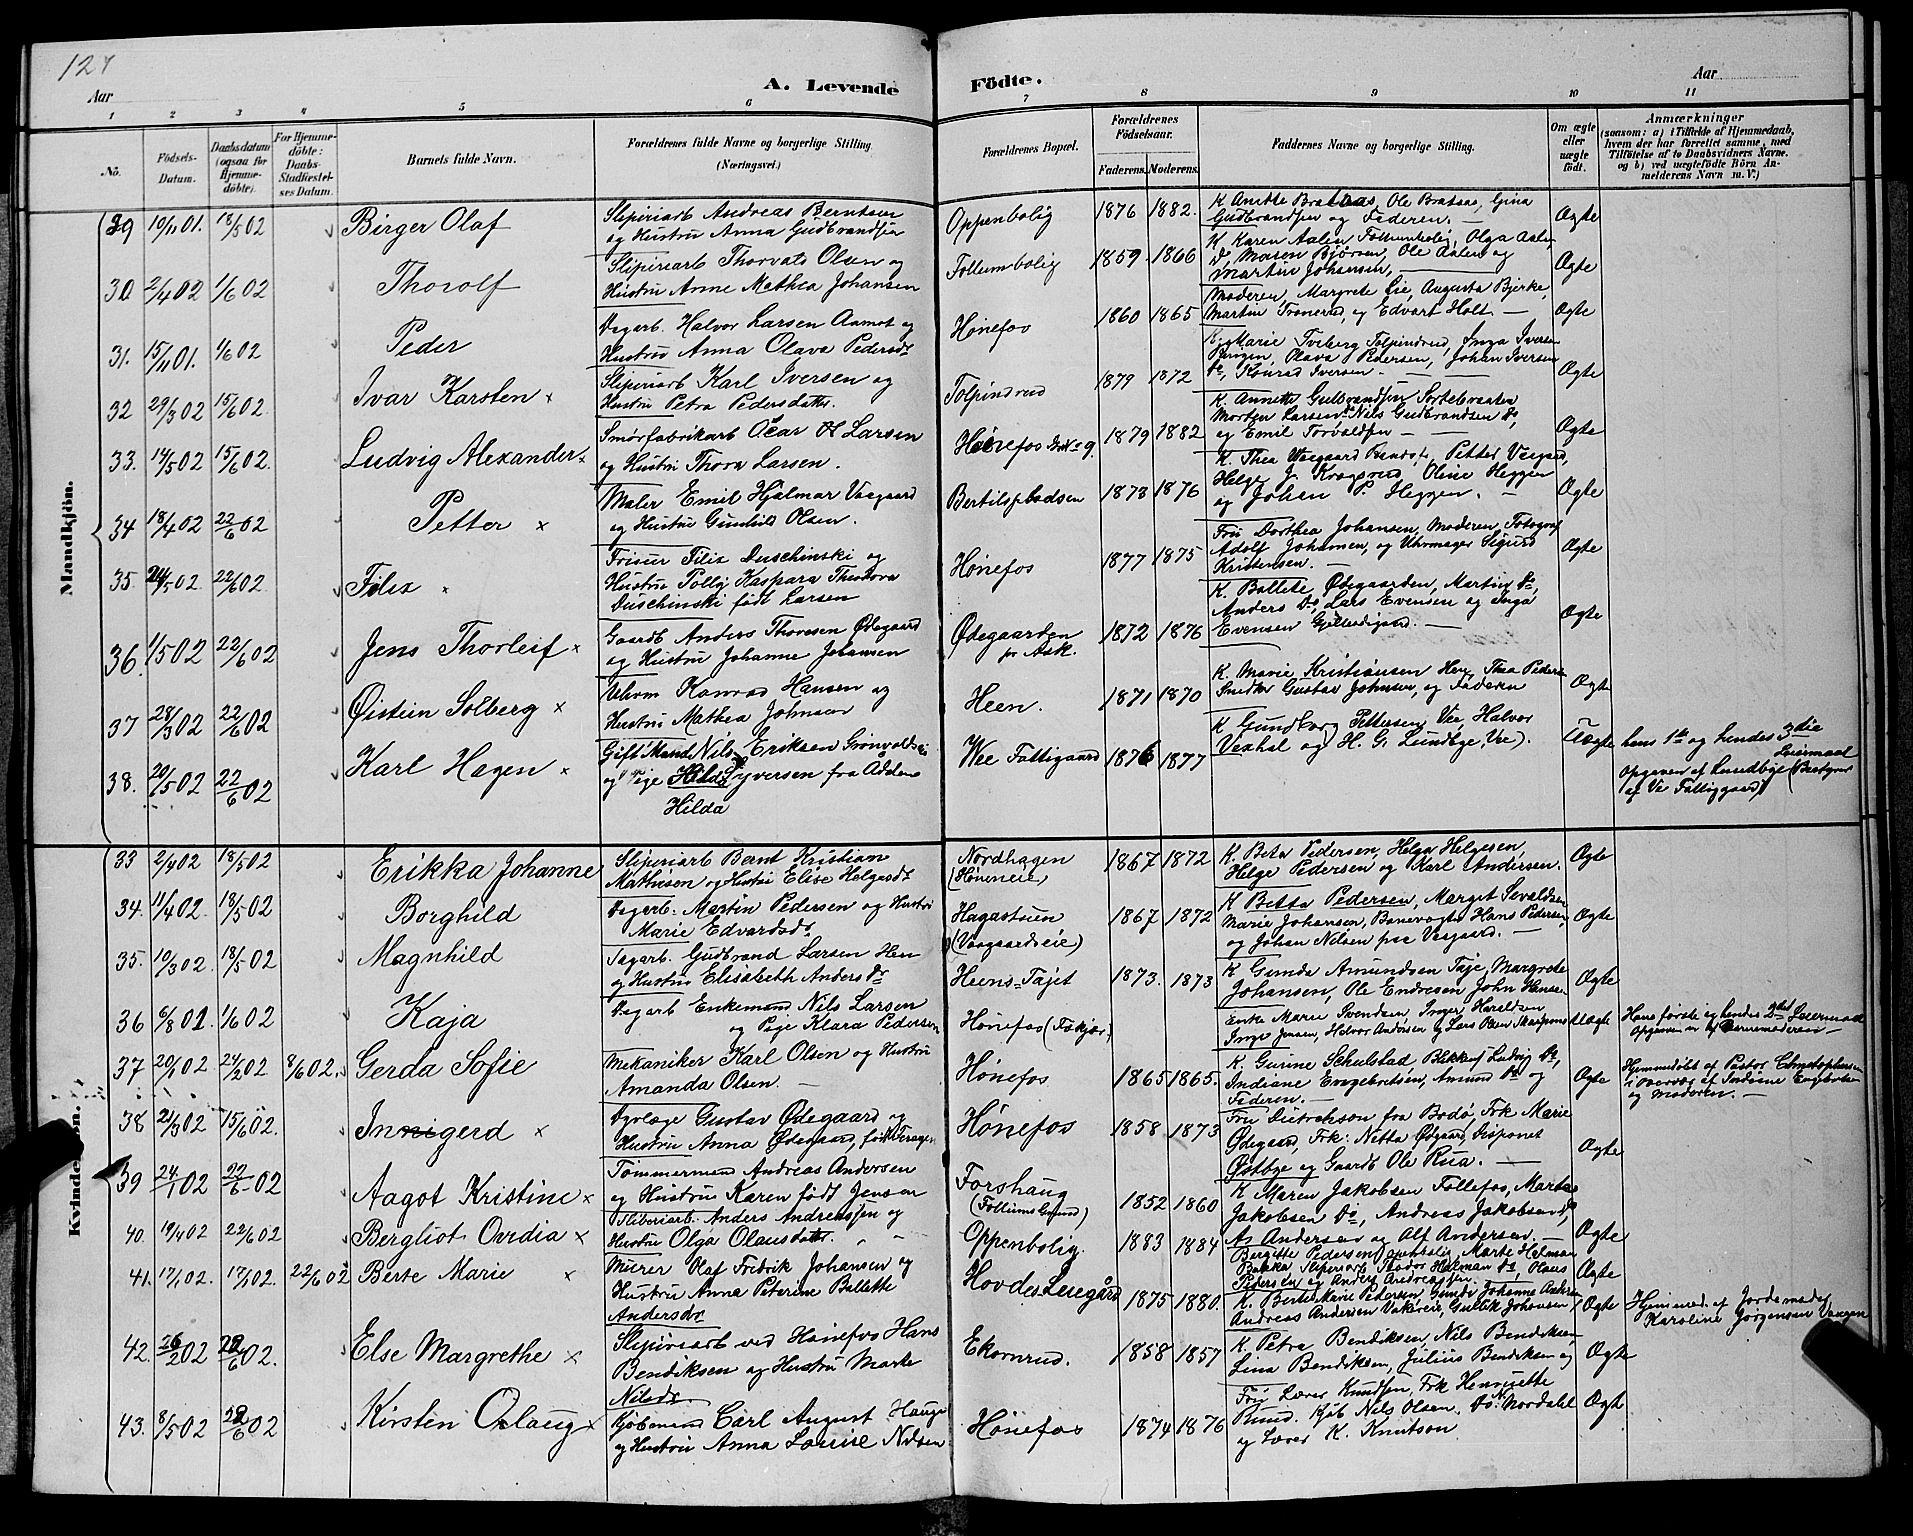 127
Aar
A. Levende
Födte.
Aar
1 2 3 4 5 6 7 8 9 10 11
No. Födsels-Datum. Daabsdatum (ogsaa for Hjemmedöbte). For Hjemmedöbte: Daabs-Stadfæstelses Datum. Barnets fulde Navn. Forældrenes fulde Navne og borgerlige Stilling. (Næringsvei.) Forældrenes Bopæl. Forældrenes Födselsaar. Faderens. Moderens. Faddernes Navne og borgerlige Stilling. Om ægte eller uægte födt. Anmærkninger (saasom: a) i Tilfælde af Hjemmedaab, hvem der har forrettet samme, med Tilföielse af to Daabsvidners Navne, og b) ved uægtefödte Börn Anmelderens Navn m. V.)
Mandkjön.
39 10/11 01. 18/5 02 Birger Olaf Slipiriarb Andreas Berntsen og Hustru Anna Gudbrandsen Oppenbolig 1876 1882. K Anette Brataas, Ole Brataas, Gina Gudbrandsen og Faderen. Ægte
30 2/4 02 1/6 02 Thorolf Slipiriarb Thorvats Olsen og Hustru Anne Mathea Johansen Follumbolig 1859 1866 K Karen Aalen Follumbolig, Olga Aalen Do, Maren Bjørsen, Ole Aalen og Martin Johansen, Ægte
31. 15/11 01. 1/6 02 Peder Dagarb. Halvor Larsen Aamot og Hustru Anna Olava Pedersdt Hønefos 1860 1865 Moderen, Margrete Lie, Augusta Bjerke, Martin Tronerud, og Edvart Holt. Ægte
32 29/3 02 15/6 02. Ivar Karsten x Slipiriarb Karl Iversen og Hustru Petra Pedersdatter. Tolpindrud 1879 1872 K. Marie Tviberg Tolpindrud, Inga Iversen, Olava Pedersen, Johan Iversen Do, Konrad Iversen. Ægte
33. 14/5 02 15/6 02. Ludvig Alexander x Smørfabrikarb Oscar Larsen og Hustru Thora Larsen. Hønefos No 9. 1879 1882 K. Annette Gulbrandsen Sortebraaten Morten Larsen, Nils Gudbrandsen Do, og Emil Torvaldsen Ægte
34 18/4 02 22/6 02 Petter x Maler Emil Hjalmar Vaagaard og Hustru Gunhild Olsen. Bertilspladsen 1873 1876 K. Thea Vaagaard, Petter Vaagaard, Helge J. Kragsrud Oline Heggen og Johan P. Heggen. Ægte
35. 24/5 02. 22/6 02 Filix x Frisør Filix Duschinski og Hustru Polly Kaspara Theodora Duschinski født Larsen Hønefos 1877 1875 Fru Dorthea Johansen, Moderen, Fotograf Adolf Johansen, og Uhrmager Sigurd Kristensen. Ægte
36. 1/5 02 22/6 02 Jens Thorleif x Gaardb Anders Thoresen Ødegaard og Hustru Johanne Johansen Ødegaarden pr Ask. 1872 1876 K. Ballete Ødegaarden, Martin Do, Anders Do, Lars Evensen og Inga Evensen Ægte
37 28/3 02 22/6 02 Øistein Solberg x Konrad Hansen og Hustru Mathea Johnsen Heen. 1871 1870 K. Marie Kristiansen Hen, Thea Pedersen Snedker Gustav Johnsen, og Faderen Ægte
38. 20/5 02 22/6 02 Karl Hagen x Gift Mand Nils Eriksen Grønvold og Pige Hilda Syversen fra Aadalen Hilda Vee Fattigaard 1876 1877 K Gundborg Pettersen Vee, Halvor Vexhal og H. G. Lundbye, Vee). Uægte hans 1te og hendes 3die Leiermaal Opgiven af Lundbye (Bestyrer af Ve Fattiggaard)
Kvindekjön.
33 2/4 02 18/5 02 Erikka Johanne Slipiriarb Bernt Kristian Mathisen og Hustru Elise Helgesdt Nordhagen (Høneneie) 1867 1872 K. Beta Pedersen, Helga Helgesen, Helge Pedersen og Karl Andersen. Ægte
34. 11/4 02. 18/5 02 Borghild Dagarb. Martin Pedersen og Hustru Marie Edvardsdt Hagastuen (Vaagaardseie) 1867 1872 K Betta Pedersen, Marget Sevaldsen Marie Johansen, Banevogter Hans Pedersen, og Johan Nilsen paa Vaagaard. Ægte
35. 10/3 02. 18/5 02 Magnhild Dagarb. Gudbrand Larsen Hen og Hustru Elisabeth Anders Dr Heens-Tajet 1873. 1873 K Gunda Amundsen Taje, Margrete Johansen, Ole Endresen John Hansen Ægte
36 6/8 01. 1/6 02 Kaja Dagarb Enkemand Nils Larsen og Pige Klara Pedersen Hønefos (Fiskjær) Enke Marie Svendsen, Inger Haraldsen Inge Jensen, Halvor Andersen og Lars Olsen Uægte Hans første og hendes 2det Leiermaal Opgiven af Barnemoderen
37 20/1 02 24/2 02 8/6 02. Gerda Sofie Mekaniker Karl Olsen og Hustru Amanda Olsen. Hønefos 1865 1865. K. Gurine Schulstad Bakken, Ludvig Do, Indiane Engebretsen, Amund Do og Faderen. Ægte Hjemmedöbt af Pastor Christophersen i overvær af Indiane Engebretsen og Moderen.
38 24/3 02 15/6 02. Innigerd x Dyrlæge Gustav Ødegaard og Hustru Anna Ødegaard, født Feragen Hønefos 1858 1873 Fru Dietrichson fra Bodø, Frk Marie Ødegaard, Frk: Netta Ødegaard, Disponet Østbye og Gaardb Ole Rua. Ægte
39 24/1 02 22/6 02 Aagot Kristine x Tømmermand Andreas Andersen og Hustru Karen født Jensen Forshaug (Follums Grund) 1852 1860 K Maren Jakobsen Follefos, Martha Jakobsen Do, Andreas Jakobsen Do, A. Andersen og Alf Andersen. Ægte
40. 19/4 02 22/6 02 Bergliot Ovidia x Sliberiarb. Anders Andreassen og Hustru Olga Olausdatter. Oppenbolig. 1883 1884 Bergitte Pedersen Oppenbolig, Marte Helman Bakka Slipiriarb Theodor Halman Do, Olaus Pedersen og Anders Andreassen. Ægte
41. 17/1 02. 17/1 02. 22/6 02 Berte Marie x Murer Olaf Fredrik Johansen og Hustru Anna Peterine Ballette Andersdr Hovdes Løegård 1875 1880. K. Berte Marie Pedersen, Gunda Johanne Andreas Andersen Vakereie, Gullik Johansen Ægte Hjemmed. af Jordemoder Karoline Jørgensen Vaagen
42. 26/2 02 22/6 02. Else Margrethe x Slipiriarb ved Hønefos Hans Bendiksen og Hustru Marte Nilsdr Ekornrud. 1858 1857 K. Petra Bendiksen, Nils Bendiksen, Lina Bendiksen, Julius Bendiksen og Ægte
43. 8/5 02 22/6 02 Kirsten Oslaug x Kjøbmand Carl August Hauge og Hustru Anna Lovise Nilsen Hønefos 1874 1876 Fru Lærer Knudsen, Frk Henriette Kjøb Nils Olsen, Do Nordahl og Lærer K. Knutson Ægte